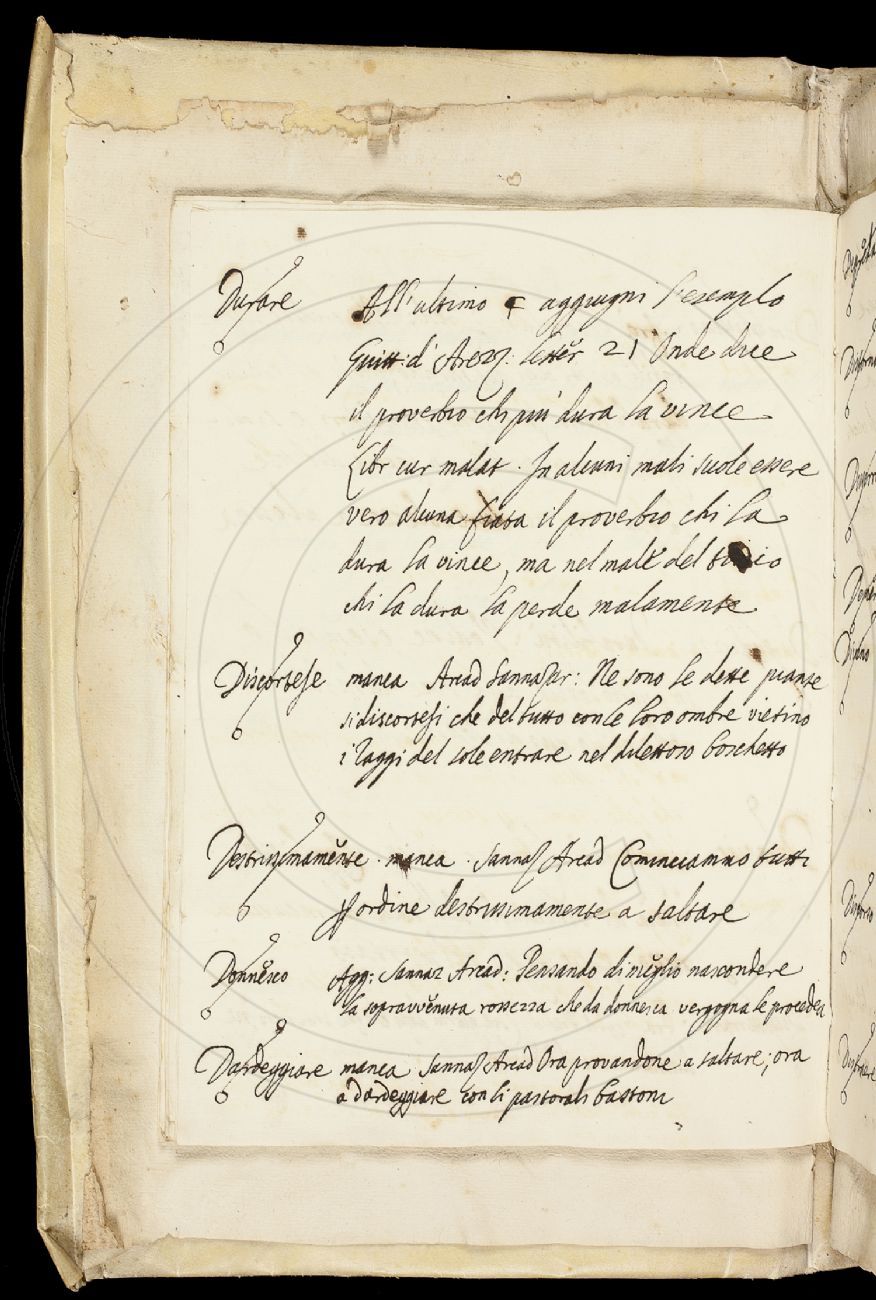 Durare All'ultimo § aggiugni l'esemplo
Guitt: d' Arezz: letter 21 Onde dice
il proverbio chi più dura la vince
Libr cur malat. In alcuni mali suole essere
vero alcuna fiata il proverbio chi la
dura la vince, ma nel male del
chi la dura la perde malamente
Discortese manca Arcad Sannazar: Ne sono le dette piante
si discortesi che del tutto con le loro ombre vietino
i raggi del sole entrare nel dilettoso boschetto
Destrissimamente. manca. Sannaz Arcad Cominciammo tutti
per ordine destrissimamente a saltare
Donnesco Agg: Sannaz Arcad: Pensando di meglio nascondere
la sopravvenuta rossezza che da donnesca vergogna le procedea
Dardeggiare manca Sannaz Arcad Ora provandone a saltare; ora
a dardeggiare con li pastorali bastoni